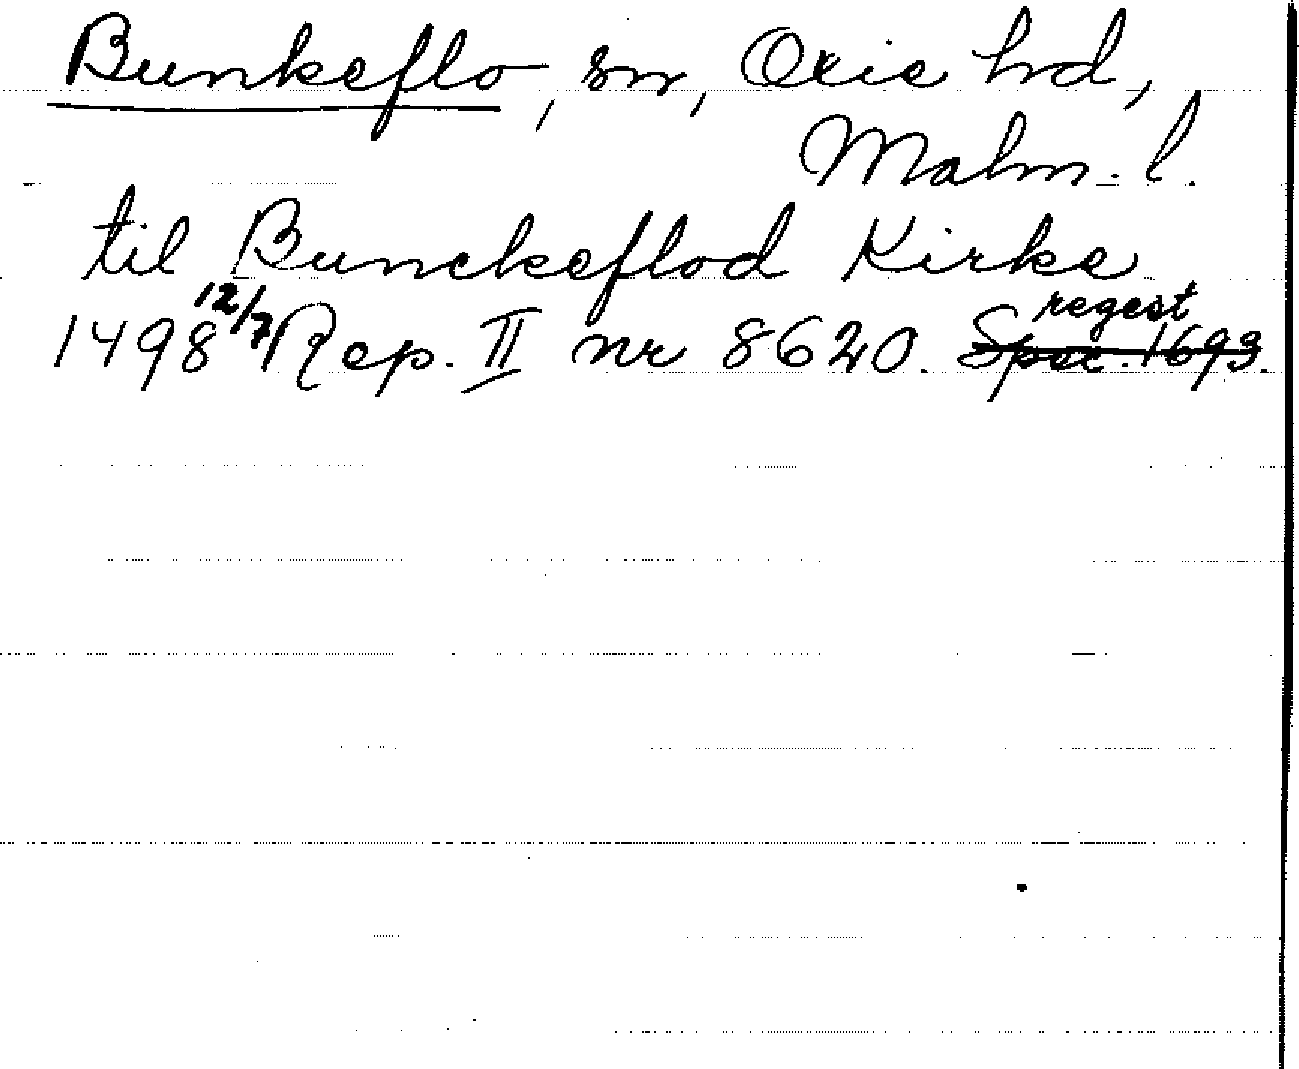 Bunkeflo, sn, Oxie hd,
Malm. l.
til Bunckeflod Kirke
1498 12/7 Rep. II nr 8620. regest Spec. 1693.